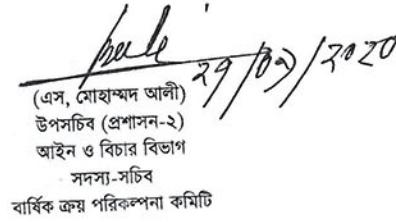 ২৭/০৯/২০২০
(এস, মোহাম্মদ আলী)
উপসচিব (প্রশাসন-২)
আইন ও বিচার বিভাগ
সদস্য-সচিব
বার্ষিক ক্রয় পরিকল্পনা কমিটি